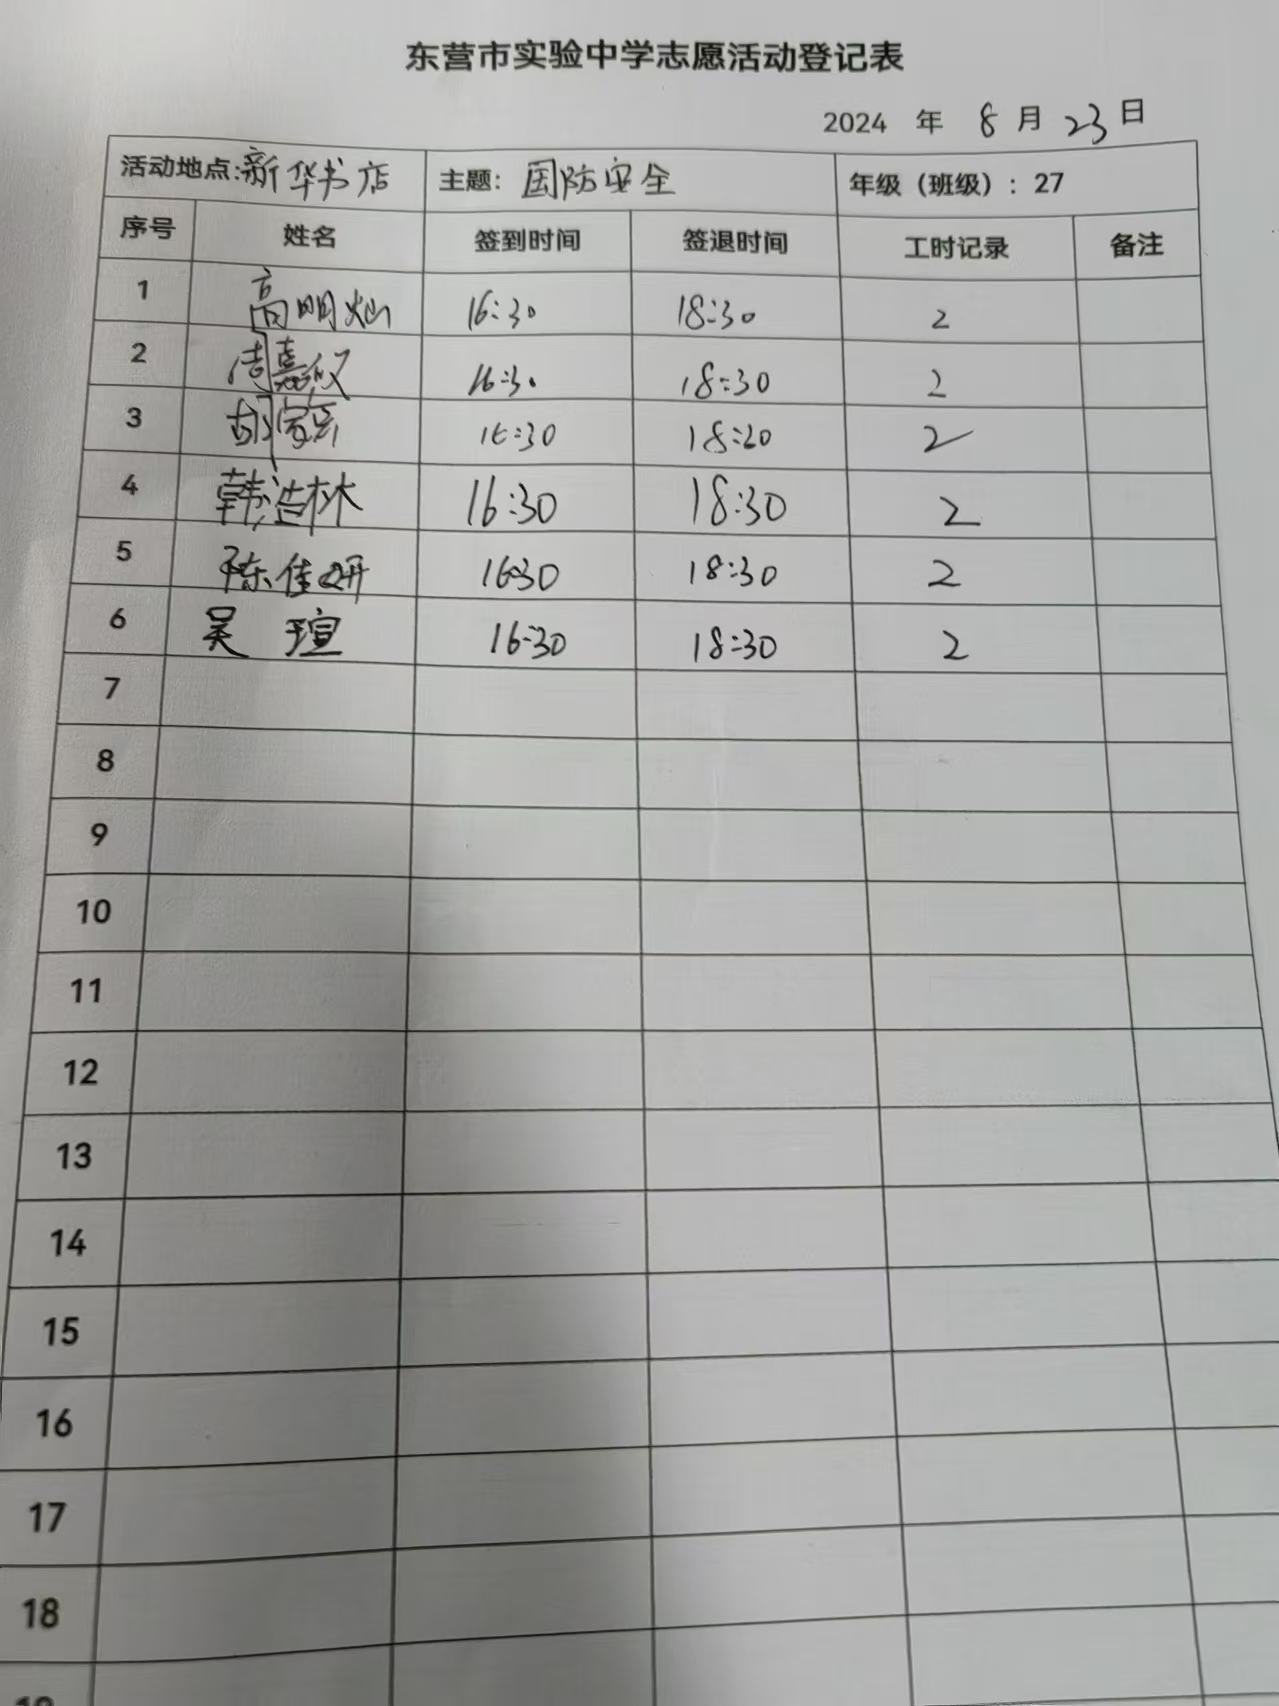 东营市实验中学志愿活动登记表
2024 年 8 月 23 日
活动地点:新华书店 主题: 国防安全 年级（班级）: 27
序号 姓名 签到时间 签退时间 工时记录 备注
1 高明灿 16:30 18:30 2
2 周嘉仪 16:30 18:30 2
3 胡 16:30 18:20 2
4 韩造林 16:30 18:30 2
5 陈佳妍 16:30 18:30 2
6 吴瑄 16:30 18:30 2
7
8
9
10
11
12
13
14
15
16
17
18